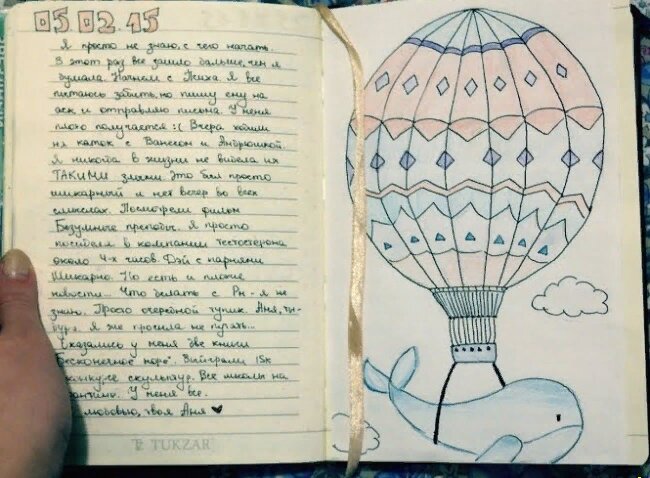 05.02.15
Я просто не знаю, с чего начать.
В этот раз все зашло дальше, чем я
думала. Начнем с Психа. Я все
пытаюсь забить, но пишу ему на
аск и отправляю письма. У меня
плохо получается :( Вчера ходили
на каток с Ванесом и Андрюшкой.
Я никогда в жизни не видела их
ТАКИМИ злыми. Это был просто
шикарный и нет вечер во всех
смыслах. Посмотрели фильм
Безумные преподы. Я просто
посидела в компании тестостерона
около 4-х часов. Дэй с парнями
Шикарно. Но есть и плохие
новости... Что делать с Рн - я не
знаю. Просто очередной тупик. Аня, ти-
Я же просила не пугать...
Оказались у меня две книги
Бесконечное море". Выиграли 15к
конкурсе скульптур. Все школы на
У меня все.
любовью, твоя Аня
TUKZAR